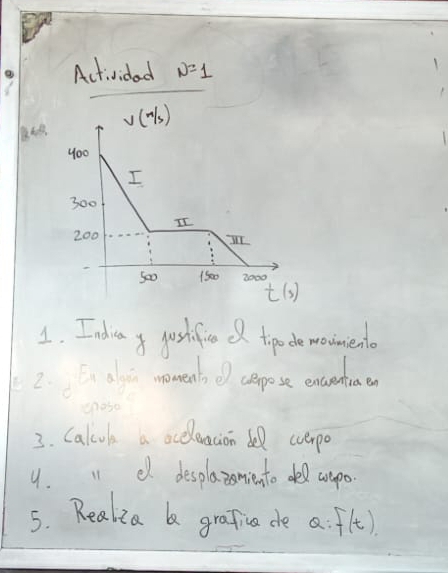 Actividad N=1
v(m/s)
400
I
300
II
200
III
500 1500 2000
t(s)
1. Indica y justifica el tipo de movimiento
2. ¿En algún momento el cuerpo se encuentra en
eposo?
3. Calcula la aceleración del cuerpo
4. " el desplazamiento del cuerpo.
5. Realiza la grafica de a:f(t).